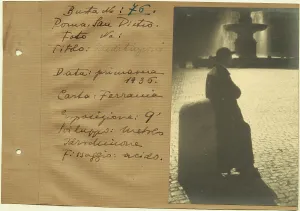 Busta No: 76.
Roma: San Pietro.
Foto No:
Data: primavera
1936
Carta: Ferrania
Esposizione: 9'
Sviluppo: metolo
idrochinone
Fissaggio: acido.